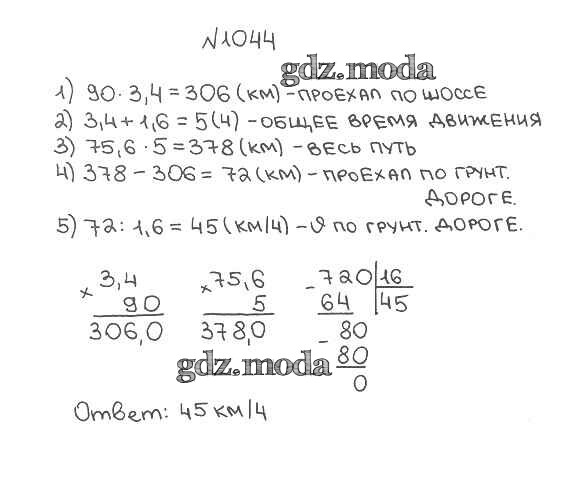 №1044
gdz.moda
1) 90 · 3,4 = 306 (км) – проехал по шоссе
2) 3,4 + 1,6 = 5 (ч) – общее время движения
3) 75,6 · 5 = 378 (км) – весь путь
4) 378 – 306 = 72 (км) – проехал по грунт.
дороге.
5) 72 : 1,6 = 45 (км/ч) – υ по грунт. дороге.
× 3,4
90
306,0
× 75,6
5
378,0
– 720 | 16
64 | 45
– 80
80
0
gdz.moda
Ответ: 45 км/ч